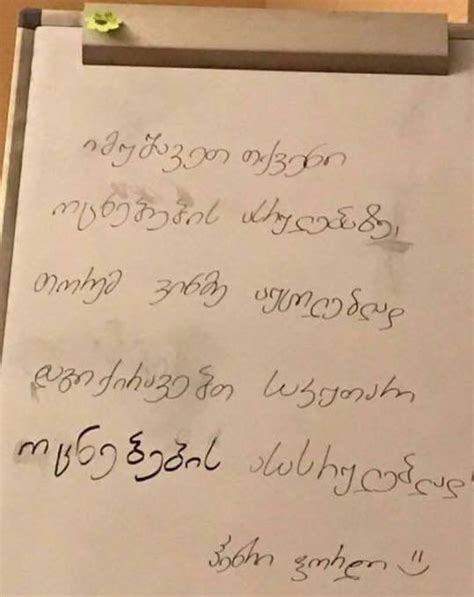 იმუშავეთ თქვენი
ოცნებების ასრულებაზე,
თორემ ვინმე აუცილებლად
დაგიქირავებთ საკუთარი
ოცნებების ასასრულებლად
ჰენრი ფორდი :)